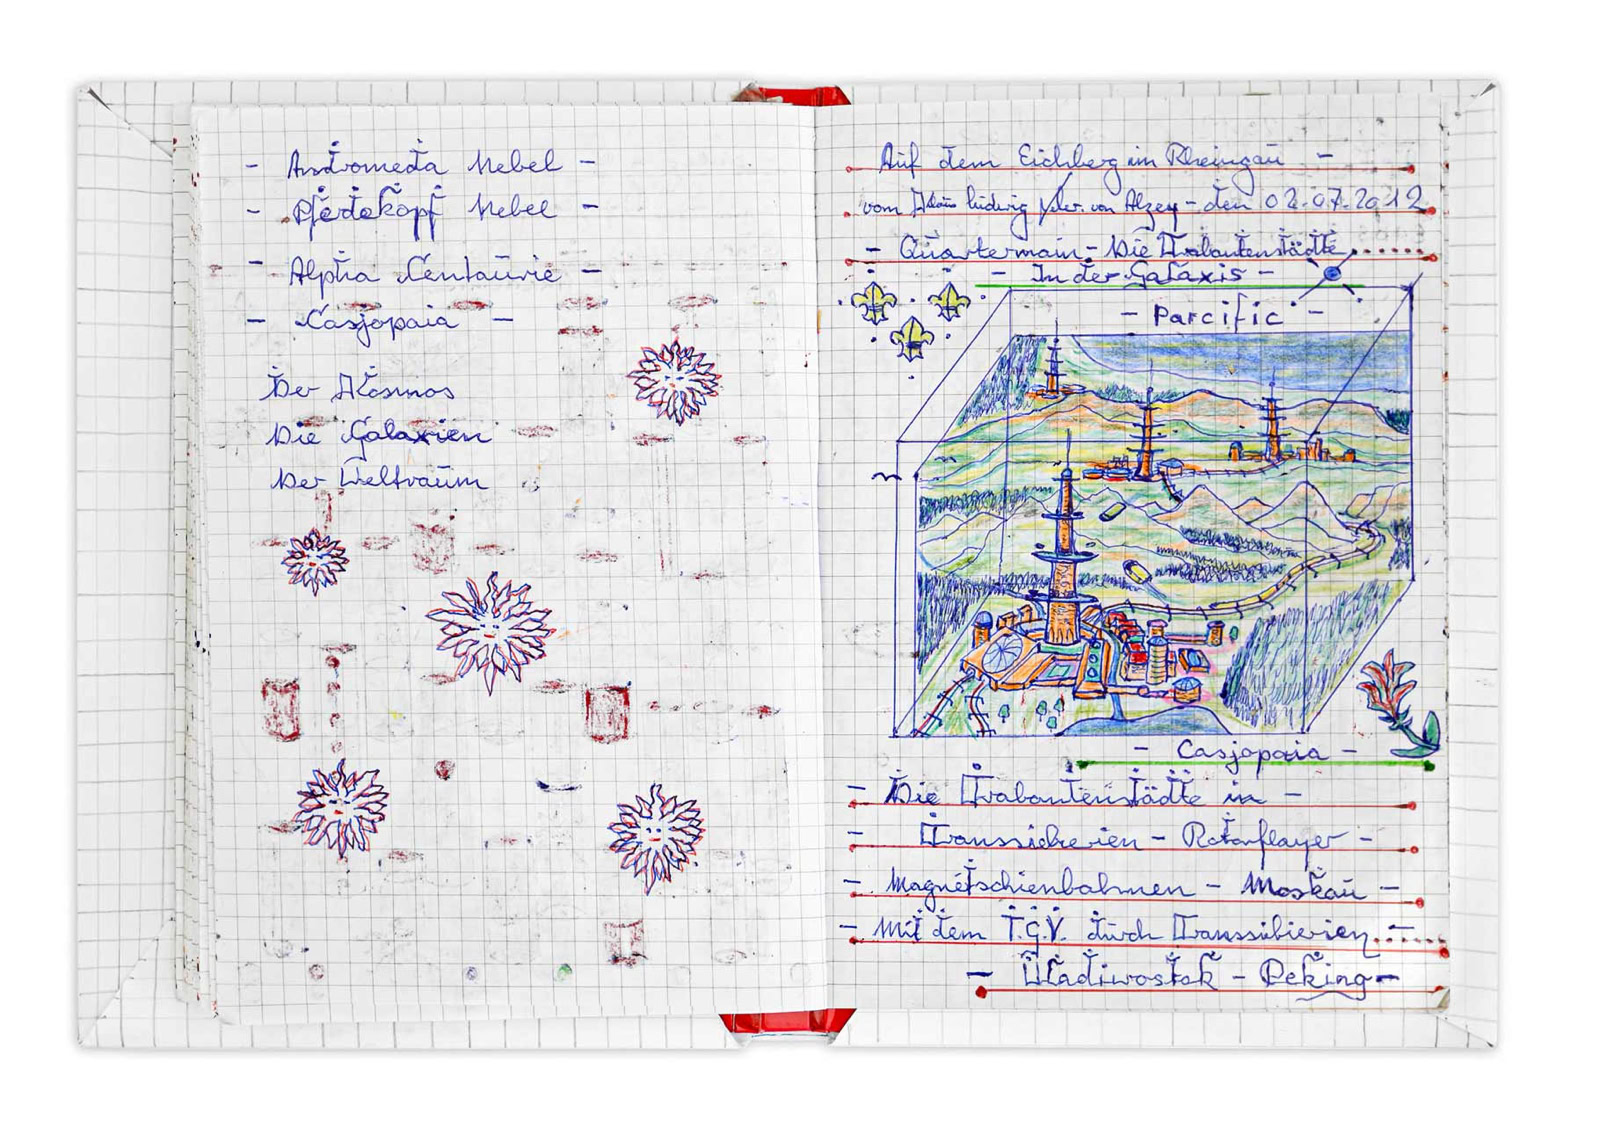 - Andromeda Nebel -
- Pferdekopf Nebel -
- Alpha Centaurie -
- Casjopaia -
Der Kosmos
Die Galaxien
Der Weltraum
Auf dem Eichberg im Rheingau -
vom Klaus Ludwig von Alzey - den 02.07.2012
- Quartermain - Die Trabantenstädte
- In der Galaxis -
- Parcific -
- Casjopaia -
- Die Trabantenstädte in -
- Transsiberien - Rotorflayer -
- Magnetschienbahnen - Moskau -
- Mit dem T.G.V. durch Transsibierien
- Wladiwostok - Peking -